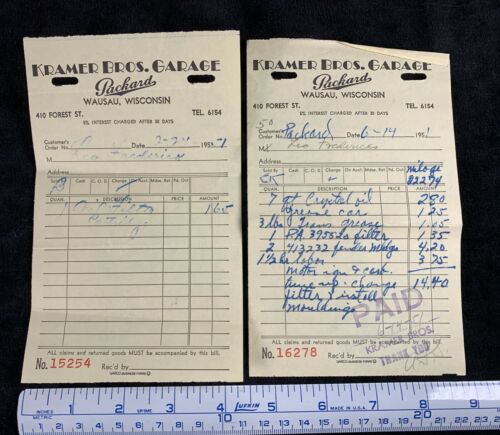 KRAMER BROS. GARAGE
Packard
WAUSAU, WISCONSIN
410 FOREST ST. TEL. 6154
6% INTEREST CHARGED AFTER 30 DAYS
Customer's
Order No. Date 195
M
Sold By Cash C. O. D. Charge On Acct. Mdse. Retd. Paid Out
QUAN. DESCRIPTION PRICE AMOUNT
1 65
ALL claims and returned goods MUST be accompanied by this bill.
No. 15254 Rec'd by
KRAMER BROS. GARAGE
Packard
WAUSAU, WISCONSIN
410 FOREST ST. TEL. 6154
6% INTEREST CHARGED AFTER 30 DAYS
50
Customer's
Order No. Packard Date 6-14 1951
M Leo Frederick
Sold By Cash C. O. D. Charge On Acct. Mdse. Retd. mileage
22274
QUAN. DESCRIPTION AMOUNT
7 qt Crystal oil 2 80
grease car 1 25
3 lbs Trans grease
1 filter
2 413232 fender 4.20
1 1/2 hr labor 3 75
Motor sign & cad.
tune up - change 14.40
filter & install
mouldings
PAID
KRAMER BROS.
THANK YOU
ALL claims and returned goods MUST be accompanied by this bill.
No. 16278 Rec'd by
INCHES 1 SPIRE 2 3 4 5 LUFKIN 6 7 MADE IN U.S.A. 8 9
METRIC 10 20